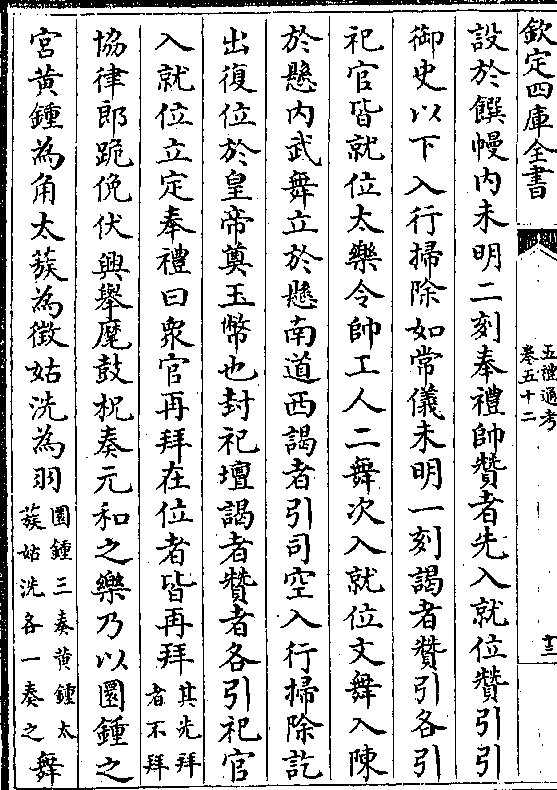 欽定四庫全書
五禮通考
卷五十二
十三
設於饌幔内未明二刻奉禮帥贊者先入就位贊引引
御史以下入行掃除如常儀未明一刻謁者贊引各引
祀官皆就位太樂令帥工人二舞次入就位文舞入陳
於懸内武舞立於懸南道西謁者引司空入行掃除訖
出復位於皇帝奠玉幣也封祀壇謁者贊者各引祀官
入就位立定奉禮曰衆官再拜在位者皆再拜其先拜
者不拜
協律郎跪俛伏興舉麾鼓柷奏元和之樂乃以圜鍾之
宫黄鍾為角太蔟為徵姑洗為羽圜鍾三奏黄鍾太
蔟姑洗各一奏之舞